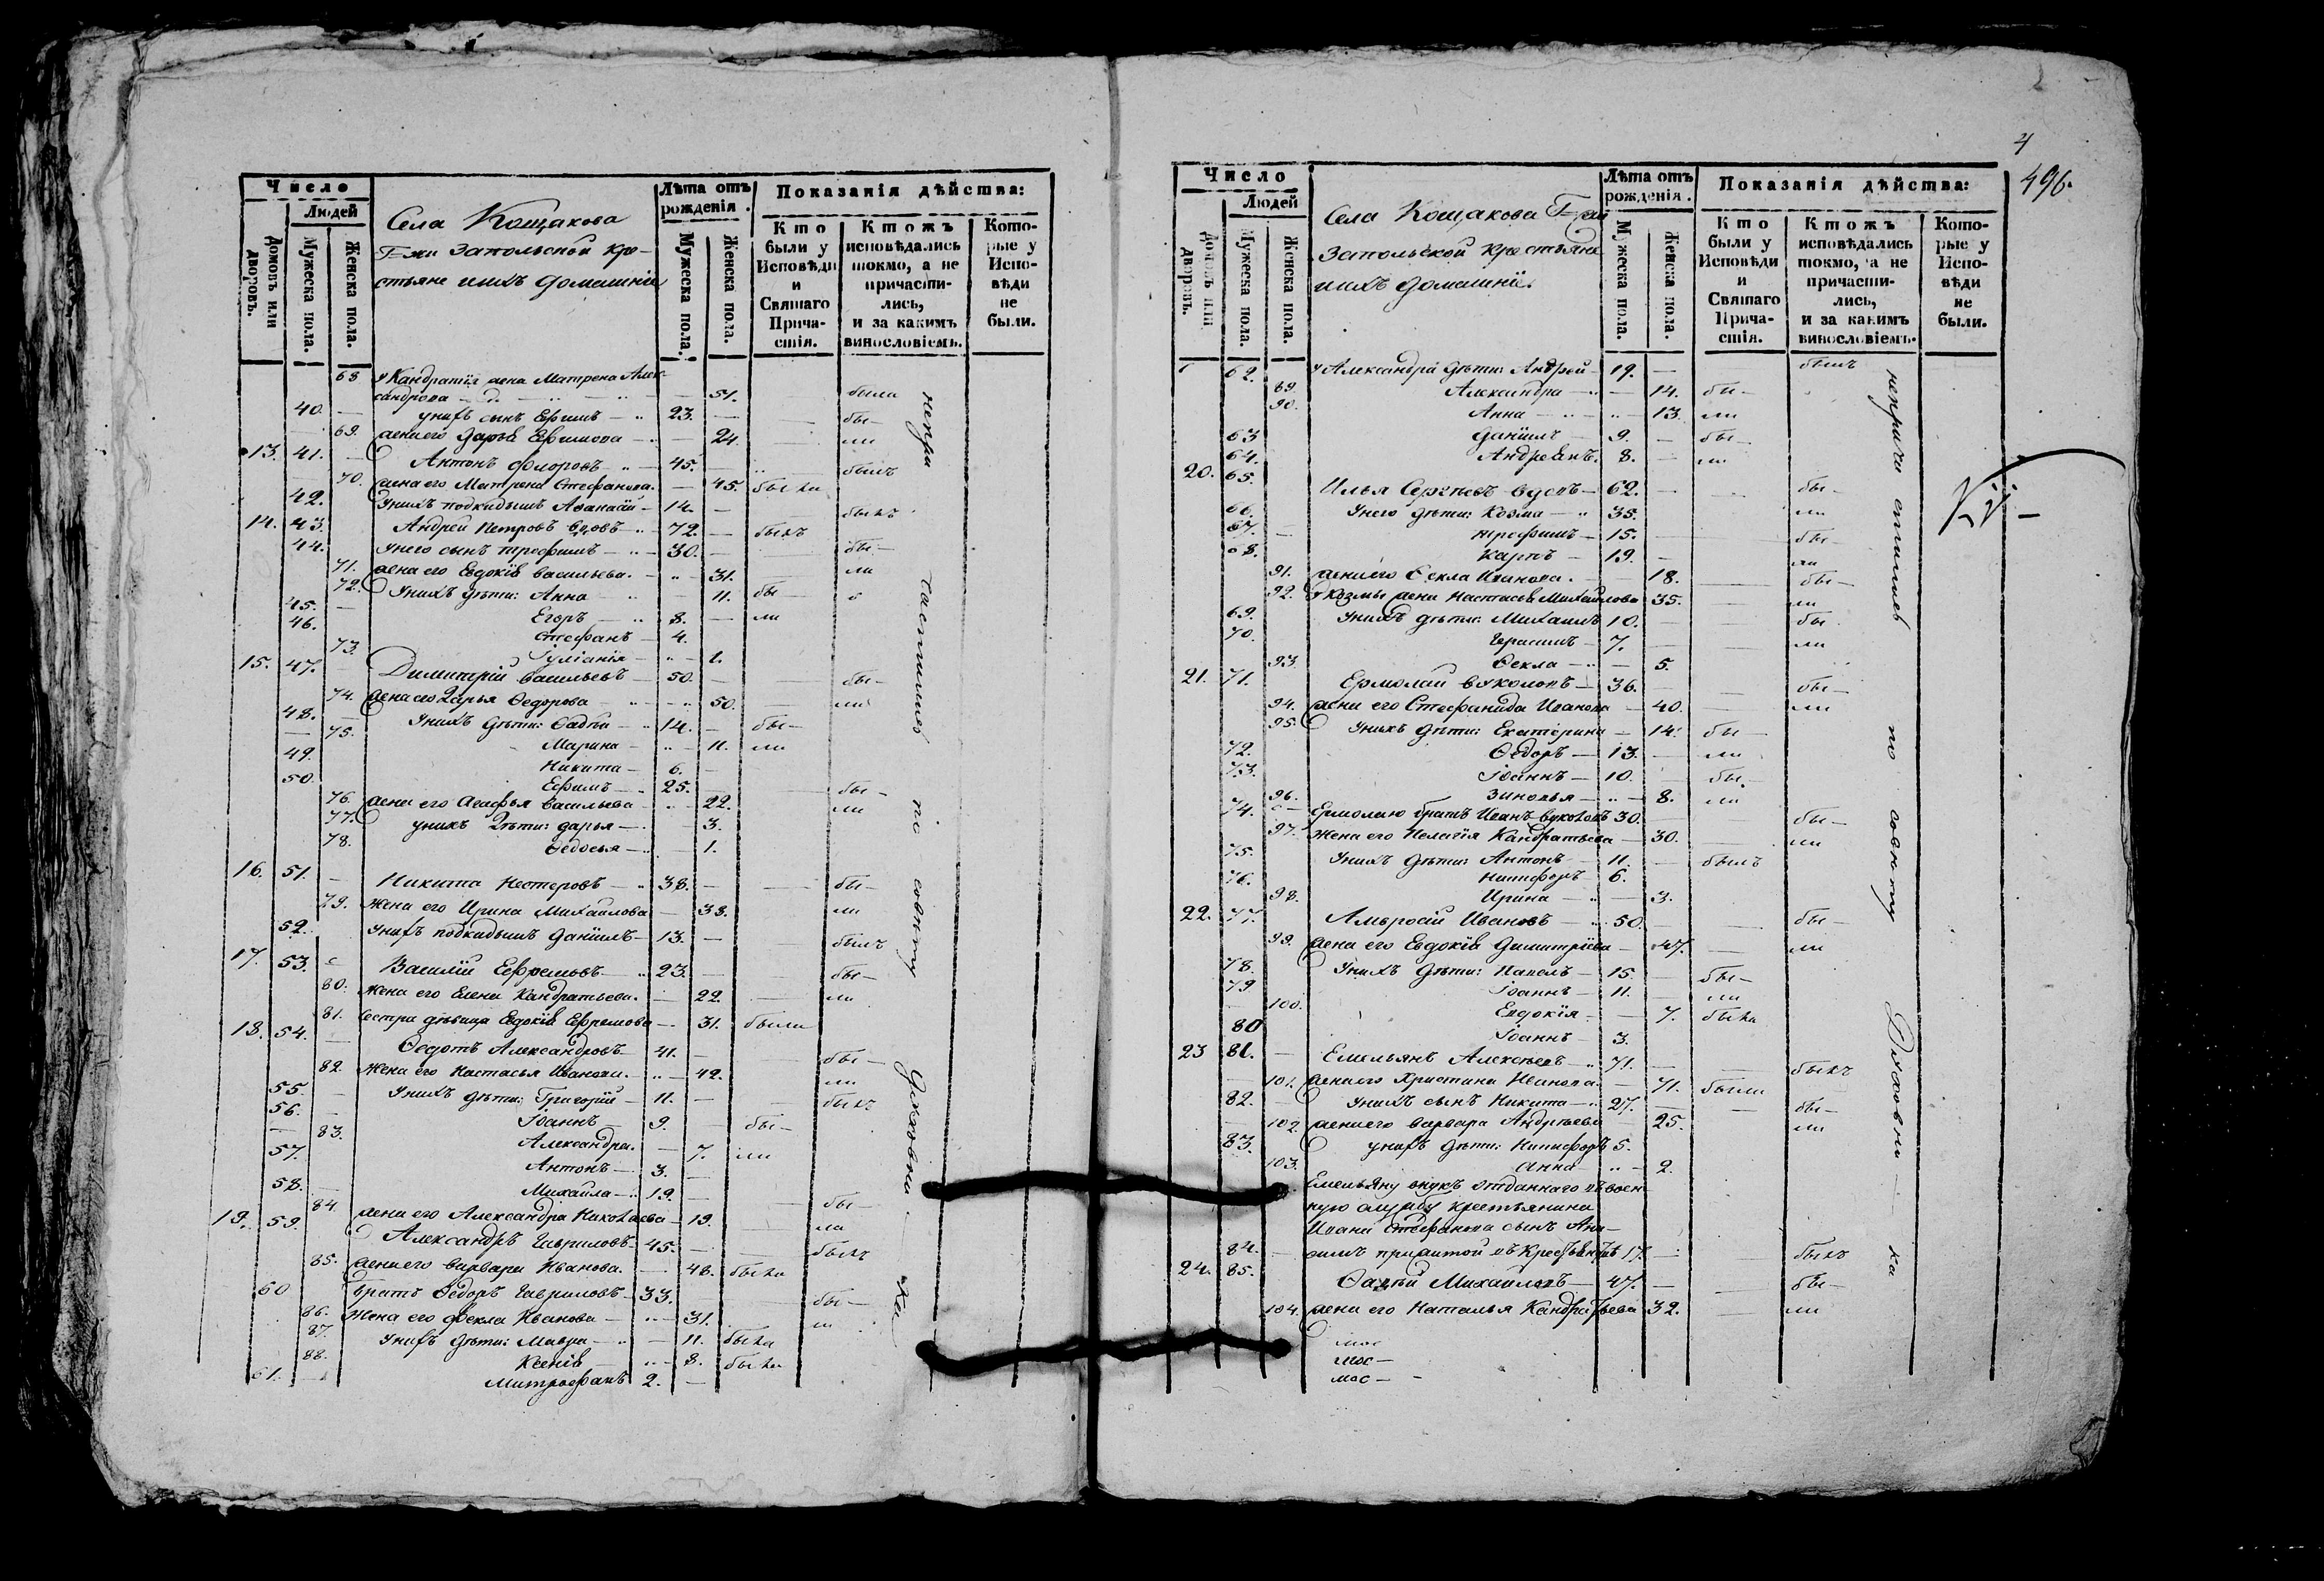 Число
Людей
Домовъ или дворовъ.
Мужеска пола.
Женска пола.
Села Кощакова
Г-жи Запольской кре-
стьяне и ихъ домашніе
Лѣта отъ рожденія.
Мужеска пола.
Женска пола.
Показанія дѣйства:
Кто были у Исповѣди и Святаго Причастія.
Ктожъ исповѣдались токмо, а не причастились, и за какимъ винословіемъ.
Которые у Исповѣди не были.
68 у Кандратія жена Матрена Алек-
сандрова 51. была
40. у нихъ сынъ Ефимъ 23. бы-
69. жена его Дарья Ефимова 24. ли
13. 41. Антонъ Флоровъ 45. былъ
70. жена его Матрена Стефанова. 45. была
42. у нихъ подкидышъ Афанасій 14. былъ
14. 43. Андрей Петровъ вдовъ 72. былъ
44. у него сынъ Трофимъ 30. бы-
71. жена его Евдокія Васильева. 31. ли
72. у нихъ дѣти: Анна 11. бы-
45. Егоръ 8. ли
46. Стефанъ 4.
73. Іуліанія 1.
15. 47. Димитрій Васильевъ 50. бы-
74. жена его Дарья Ѳедорова 50. ли
48. у нихъ дѣти: Фадѣй 14. бы-
75. Марина 11. ли
49. Никита 6.
50. Ефимъ 25. бы-
76. жена его Агафья Васильева 22. ли
77. у нихъ дѣти: Дарья 3.
78. Ѳедосья 1.
16. 51. Никита Нестеровъ 38. бы-
79. жена его Ирина Михайлова 38. ли
52. у нихъ подкидышъ Даніилъ 13. былъ
17. 53. Василій Ефремовъ 23. бы-
80. жена его Елена Кандратьева. 22. ли
81. сестра дѣвица Евдокія Ефремова 31. была
18. 54. Ѳедотъ Александровъ 41. бы-
82. жена его Настасья Иванова. 42. ли
55. у нихъ дѣти: Григорій 11. былъ
56. Іоаннъ 9. бы-
83. Александра. 7. ли
57. Антонъ 3.
58. Михайла 19. бы-
84. жена его Александра Николаева 19. ли
19. 59. Александръ Гавриловъ 45. былъ
85. жена его Варвара Иванова. 48. была
60 братъ Ѳедоръ Гавриловъ 33. бы-
86. жена его Фекла Иванова 31. ли
87. у нихъ дѣти: Мавра 11. была
88. Ксенія 8. была
61. Митрофанъ 2.
непричастившіеся по совѣту Духовника
4
496.
Число
Людей
Домовъ или дворовъ.
Мужеска пола.
Женска пола.
Села Кощакова Г-жи
Запольской крестьяне
и ихъ домашніе.
Лѣта отъ рожденія.
Мужеска пола.
Женска пола.
Показанія дѣйства:
Кто были у Исповѣди и Святаго Причастія.
Ктожъ исповѣдались токмо, а не причастились, и за какимъ винословіемъ.
Которые у Исповѣди не были.
62. у Александра дѣти: Андрей 19. былъ
89. Александра 14. бы-
90. Анна 13. ли
63 Даніилъ 9. бы-
64. Андреянъ. 8. ли
20. 65. Илья Сергѣевъ вдовъ 62. бы-
66. у него дѣти: Козма 35. ли
67. Трофимъ 15. бы-
68. Карпъ 19. ли
91. жена его Ѳекла Иванова. 18. бы-
92. у Козмы жена Настасья Михайлова 35. ли
69. у нихъ дѣти: Михаилъ 10. бы-
70. Герасимъ 7. ли
93. Ѳекла 5.
21. 71. Ермолай Вуколовъ 36. бы-
94. жена его Стефанида Иванова 40. ли
95. у нихъ дѣти: Екатерина 14. бы-
72. Ѳедоръ 13. ли
73. Іоаннъ 10. бы-
96. Зиновья 8. ли
74. Ермолаю братъ Иванъ Вуколовъ 30. бы-
97. жена его Пелагія Кандратьева 30. ли
75. у нихъ дѣти: Антонъ 11. былъ
76. Никифоръ 6.
98. Ирина 3.
22. 77. Амвросій Ивановъ 50. бы-
99. жена его Евдокія Димитріева 47. ли
78. у нихъ дѣти: Павелъ 15. бы-
79 Іоаннъ 11. ли
100. Евдокія 7. была
80 Іоаннъ 3.
23 81. Емельянъ Алексѣевъ 71. былъ
101. жена его Христина Иванова. 71. была
82. у нихъ сынъ Никита 27. бы-
102. жена его Варвара Андреева 25. ли
83. у нихъ дѣти: Никифоръ 5.
103. Анна 2.
Емельяну внукъ отданнаго въ воен-
ную службу крестьянина
Ивана Стефанова сынъ Ани-
84. симъ 17. былъ
24. 85. Фадѣй Михайловъ 47. бы-
104. жена его Наталья Кандратьева 32. ли
непричастившіеся по совѣту Духовника